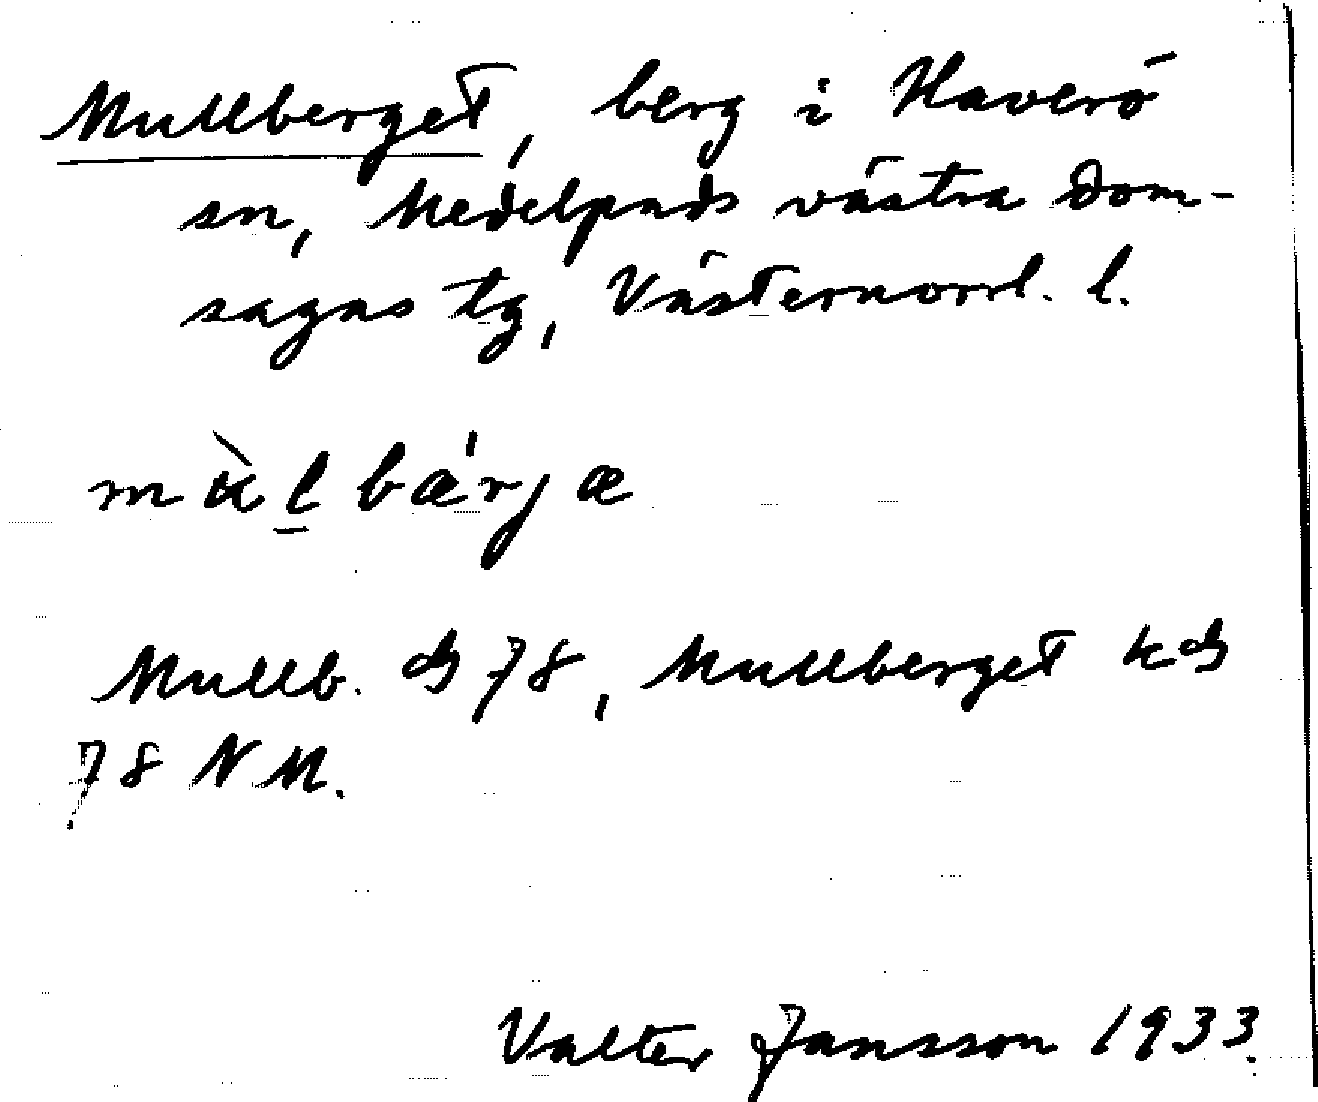 Mullberget, berg i Haverö
sn, Medelpads västra dom-
sagas tg, Västernorrl. l.
mùl̲bæ'rjæ
Mullb. ds 78, Mullberget kds
78 NM.
Valter Jansson 1933.